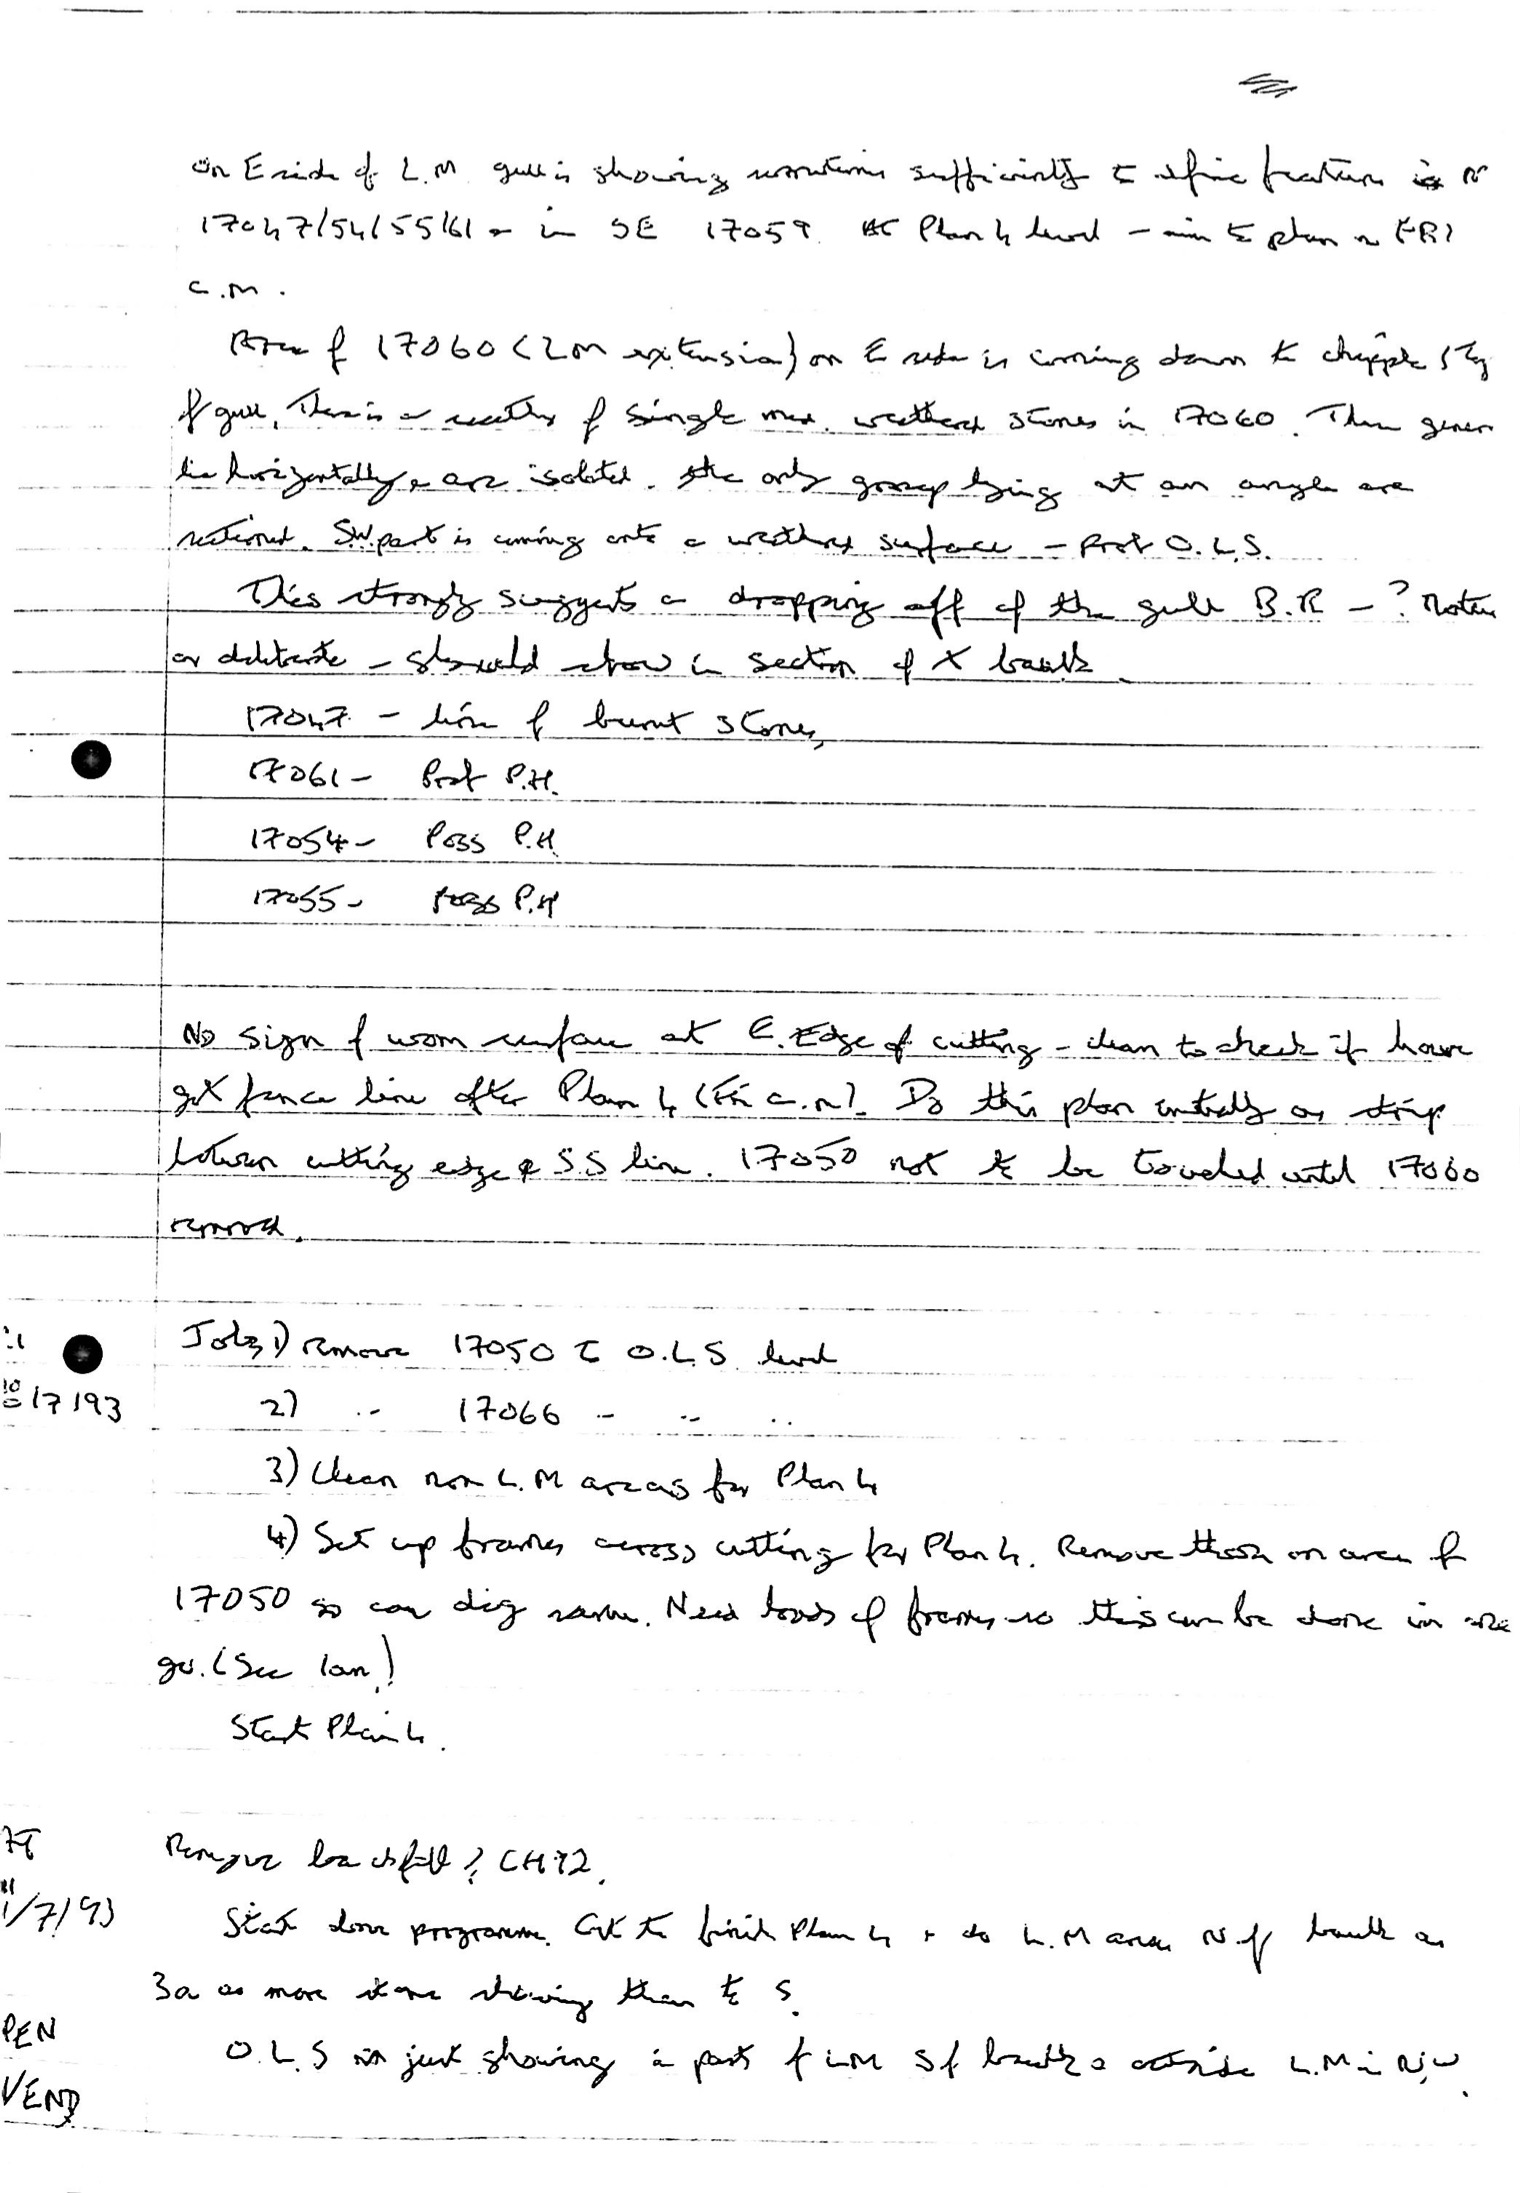 on E side of L.M. gull is showing sufficiently to define features in N
17047/54/55/61 & in SE 17059. At Plan 4 level – aim to plan in FRI
a.m.
Area of 17060 (2m extension) on E side is coming down to
of gull. There is a of single weathered stones in 17060. These gener
lie horizontally & are isolated. The only group lying at an angle are
sectioned. SW part is coming onto a weathered surface – Prob O.L.S.
This strongly suggests a dropping off of the gull B.R – ? Natur
or deliberate – should show in section of X baulk.
17047 – line of burnt stones,
17061 – Prob P.H.
17054 – Poss P.H.
17055 – Poss P.H
No sign of worn surface at E. Edge of cutting – clean to check if have
got fence line after Plan 4 (Fri a.m). Do this plan initially as strip
between cutting edge & SS line. 17050 not to be touched until 17060
removed.
Jobs 1) remove 17050 to O.L.S. level
/7/93
2) .. 17066 .. .. ..
3) Clean non L.M areas for Plan 4
4) Set up frames across cutting for Plan 4. Remove those on area of
17050 so can dig same. Need loads of frames so this can be done in one
go. (See Ian!)
Start Plan 4.
Remove backfill ? CH92.
1/7/93
Start above programme. Got to finish Plan 4 + do L.M area N. of baulk as
3a as more stone showing than to S.
PEN
O.L.S is just showing in part of LM S of baulk & outside L.M in N.W.
VEND